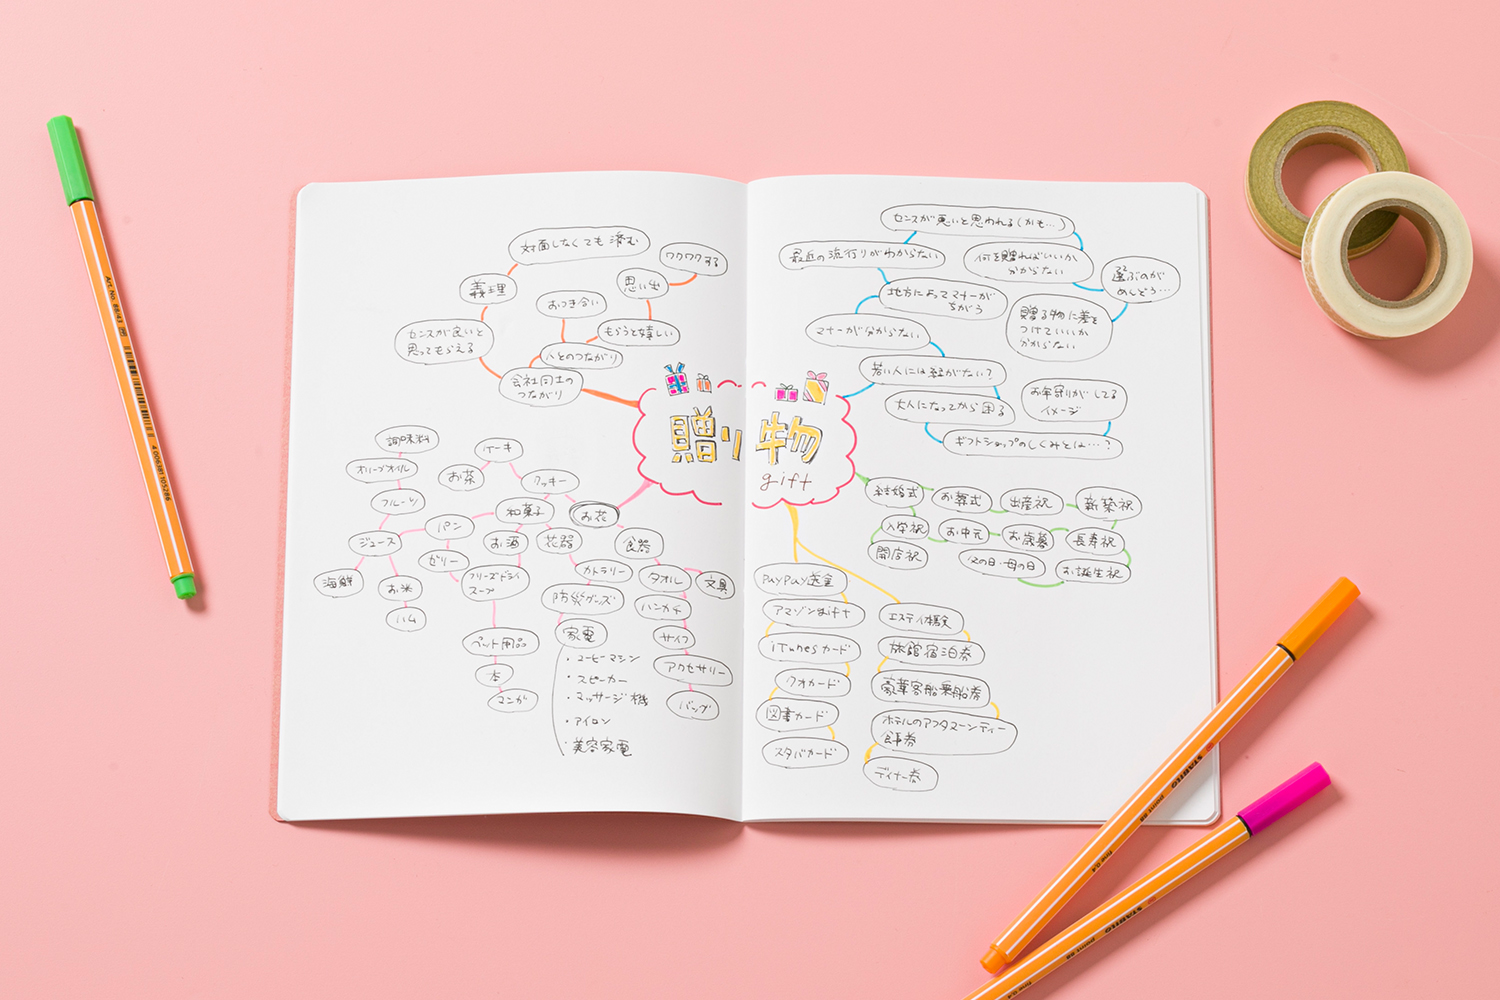 対面しなくても済む
ワクワクする
義理
思い出
おつき合い
センスが良いと
思ってもらえる
もらうと嬉しい
人とのつながり
会社同士の
つながり
贈り物
gift
センスが悪いと思われる(かも…)
最近の流行りがわからない
何を贈ればいいか
分からない
選ぶのが
めんどう…
地方によってマナーが
ちがう
贈る物に差を
つけていいか
分からない
マナーが分からない
若い人には縁がない?
お年寄りがしてる
イメージ
大人になってから困る
ギフトショップのしくみとは…?
調味料
ケーキ
オリーブオイル
お茶
クッキー
フルーツ
和菓子
お花
パン
ジュース
お酒
花器
食器
ゼリー
海鮮
お米
フリーズドライ
スープ
カトラリー
タオル
文具
ハム
防災グッズ
ハンカチ
ペット用品
家電
サイフ
本
アクセサリー
マンガ
バッグ
・コーヒーマシン
・スピーカー
・マッサージ機
・アイロン
・美容家電
結婚式
お葬式
出産祝
新築祝
入学祝
お中元
お歳暮
長寿祝
開店祝
父の日・母の日
お誕生祝
PayPay送金
アマゾンgift
iTunesカード
クオカード
図書カード
スタバカード
エステ体験
旅館宿泊券
豪華客船乗船券
ホテルのアフタヌーンティー
食事券
ディナー券
Art. No. 88/43
4 006381 105286
STABILO
point 88
fine 0,4
STABILO
point 88
fine 0,4